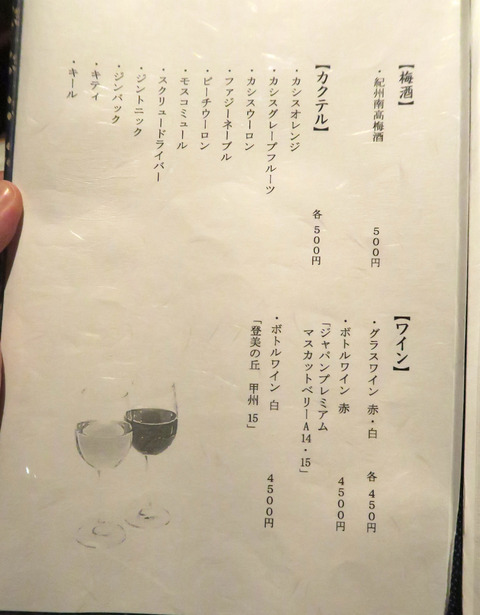 【梅酒】
・紀州南高梅酒 500円
【カクテル】 各 500円
・カシスオレンジ
・カシスグレープフルーツ
・カシスウーロン
・ファジーネーブル
・ピーチウーロン
・モスコミュール
・スクリュードライバー
・ジントニック
・ジンバック
・キティ
・キール
【ワイン】
・グラスワイン 赤・白 各 450円
・ボトルワイン 赤 4500円
「ジャパンプレミアム
マスカットベリーA 14・15」
・ボトルワイン 白 4500円
「登美の丘 甲州 15」